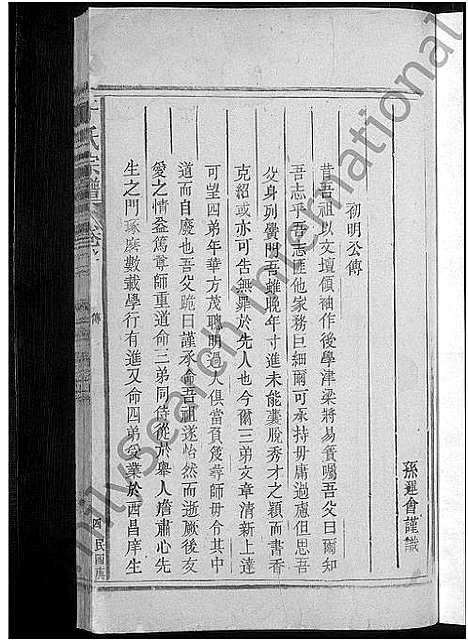 孫運會謹識
初明公傳
昔吾祖以文壇領袖作後學津梁將易簀囑吾父曰爾知
吾志乎吾志匪他家務巨細爾可承持毋庸過慮但思吾
父身列黌門吾雖晚年寸進未能囊脫秀才之穎而書香
克紹或亦可告無罪於先人也今爾三弟文章清新上達
可望四弟年華方茂聰明過人俱當負笈尋師毋令其中
道而自廢也吾父跪曰謹承命吾祖遂怡然而逝厥後友
愛之情益篤尊師重道命三弟同侍從於舉人詹肅心先
生之門琢磨數載學行有進又命四弟受業於西昌庠生
氏宗譜
傳
四
民國
MySearch International